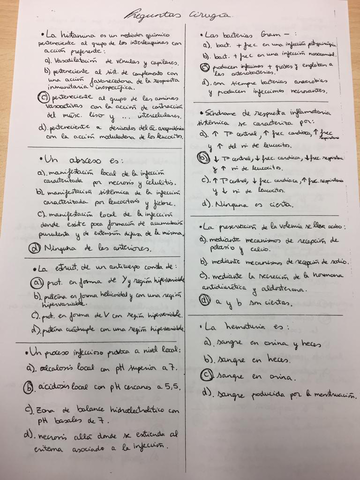 Preguntas Cirugía
• La histamina es un mediador químico
perteneciente al grupo de las
acción preferente:
a). Vasodilatación de vénulas y capilares.
b). perteneciente al sist. de complemento con
una acción favorecedora de la respuesta
inmunitaria inespecífica.
c). perteneciente al grupo de las aminas
vasoactivas con la acción de contracción
del músc. liso y ... intercelulares.
d). perteneciente a derivados del ác. araquidónico
con la acción moduladora de los leucocitos.
• Un absceso es:
a). manifestación local de la infección
caracterizada por necrosis y celulitis.
b). manifestación sistémica de la infección
caracterizada por leucocitos y fiebre.
c). manifestación local de la infección
donde existe poca formación de acumulación
purulenta y de extensión difusa de la misma.
d). Ninguna de las anteriores.
• La estruct. de un anticuerpo consta de:
a). prot. en forma de Y y región hipervariable.
b). proteína en forma helicoidal y con una región
hipervariable.
c). prot. en forma de V con región hipervariable.
d). proteína cuádruple con una región hipervariable.
• Un proceso infeccioso provoca a nivel local:
a). alcalosis local con pH superior a 7.
b). acidosis local con pH cercanos a 5,5.
c). Zona de balance hidroelectrolítico con
pH basales de 7.
d). necrosis allá donde se extiende al
eritema asociado a la infección.
• Las bacterias Gram - :
a). bact. + frec. en una infección
b). bact. + frec. en una infección nosocomial.
c). producen infecciones + graves y engloban a
las enterobacterias.
d). son siempre bacterias anaerobias
y producen infecciones necrosantes.
• Síndrome de respuesta inflamatoria
sistémica se caracteriza por:
a). ↑ Tª central, ↑ frec. cardíaca, ↑ frec.
y ↑ del nº de leucocitos.
b). ↓ Tª central, ↓ frec. cardíaca, ↓ frec. respiratoria
y ↑ nº de leucocitos.
c). ↑ Tª central, ↓ frec. cardíaca, ↑ frec. respiratoria
y ↓ nº de leucocitos.
d). Ninguna es cierta.
• La preservación de la volemia se lleva a cabo:
a). mediante mecanismos de recepción de
potasio y calcio.
b). mediante mecanismos de recepción de sodio.
c). mediante la secreción de la hormona
antidiurética y aldosterona.
d). a y b son ciertas.
• La hematuria es:
a). sangre en orina y heces
b). sangre en heces.
c). sangre en orina.
d). sangre producida por la menstruación.